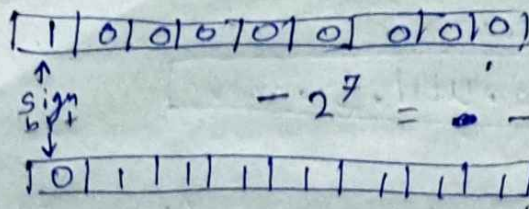 | 1 | 0 | 0 | 0 | 0 | 0 | 0 | 0 | 0
Sign
bit
- 2⁷ = -
| 0 | 1 | 1 | 1 | 1 | 1 | 1 | 1 | 1